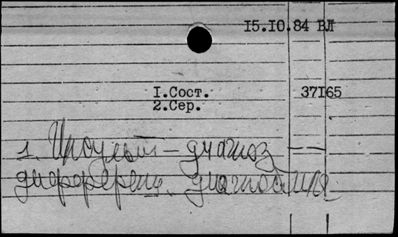 15.10.84 ВЛ
1.Сост. 37165
2.Сер.
1. Инсульт – диагноз
дифференц. диагностика